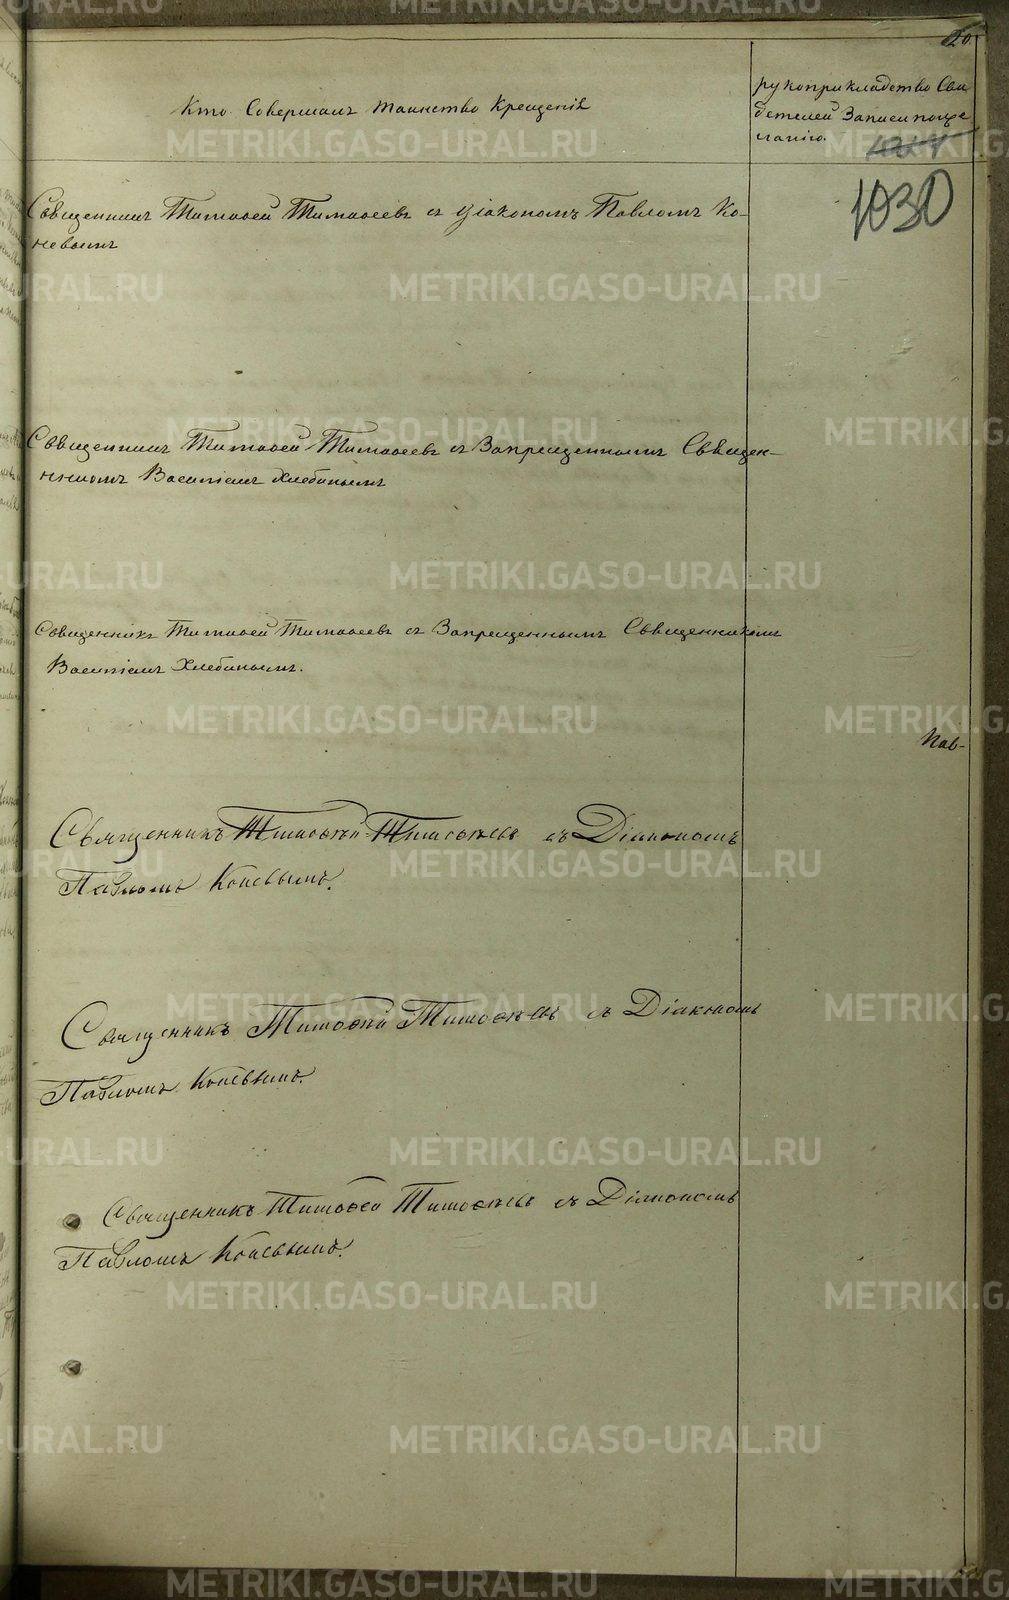 20.
Кто Совершалъ таинство Крещенія
рукоприкладство Сви
детелей Записи по же
ланію.
1030
Священникъ Тимофей Тимофеевъ съ діакономъ Павломъ Ко-
невымъ
Священникъ Тимофей Тимофеевъ съ Запрещеннымъ Священ-
никомъ Василіемъ Хлебинымъ
Священникъ Тимофей Тимофеевъ съ Запрещеннымъ Священникомъ
Василіемъ Хлебинымъ.
Пав-
Священникъ Тимофей Тимофѣевъ съ Діакономъ
Павломъ Коневымъ.
Священникъ Тимофей Тимофѣевъ съ Діакономъ
Павломъ Коневымъ.
Священникъ Тимофей Тимофѣевъ съ Діакономъ
Павломъ Коневымъ.
METRIKI.GASO-URAL.RU